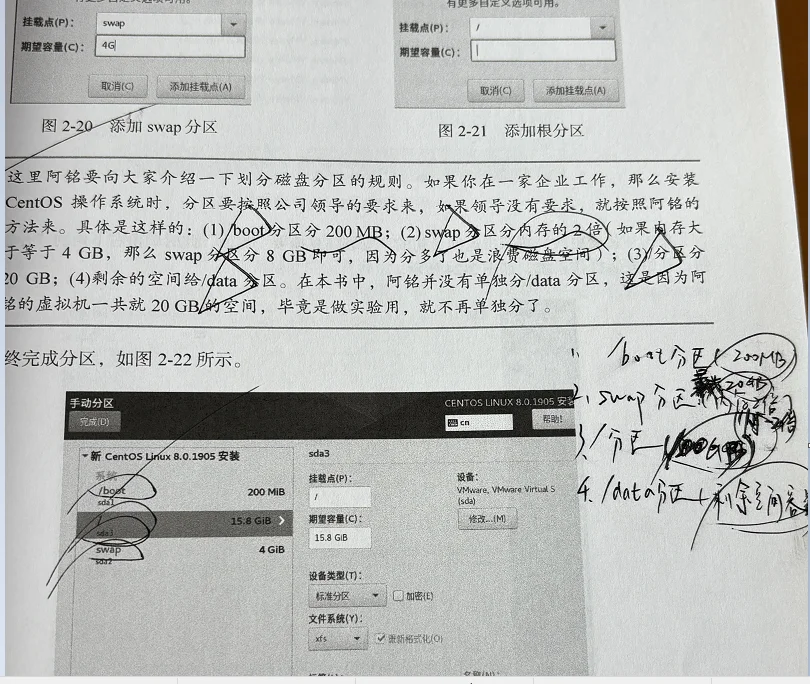 有更多自定义选项可用。
挂载点(P)： swap
期望容量(C)： 4G
取消(C) 添加挂载点(A)
图 2-20 添加 swap 分区
有更多自定义选项可用。
挂载点(P)： /
期望容量(C)：
取消(C) 添加挂载点(A)
图 2-21 添加根分区
这里阿铭要向大家介绍一下划分磁盘分区的规则。如果你在一家企业工作，那么安装
CentOS 操作系统时，分区要按照公司领导的要求来，如果领导没有要求，就按照阿铭的
方法来。具体是这样的：(1) /boot 分区分 200 MB；(2) swap 分区分内存的 2 倍（如果内存大
于等于 4 GB，那么 swap 分区分 8 GB 即可，因为分多了也是浪费磁盘空间）；(3)/分区分
20 GB；(4)剩余的空间给/data 分区。在本书中，阿铭并没有单独分/data 分区，这是因为阿
铭的虚拟机一共就 20 GB 的空间，毕竟是做实验用，就不再单独分了。
终完成分区，如图 2-22 所示。
1. /boot 分区 (200MB)
2. swap 分区
3. /分区
4. /data分区 剩余空间
手动分区
完成(D)
CENTOS LINUX 8.0.1905 安装
cn
帮助!
新 CentOS Linux 8.0.1905 安装
系统
/boot 200 MiB
sda1
/ 15.8 GiB
sda3
swap 4 GiB
sda2
sda3
挂载点(P)：
/
期望容量(C)：
15.8 GiB
设备：
VMware, VMware Virtual S
(sda)
修改...(M)
设备类型(T)：
标准分区 加密(E)
文件系统(Y)：
xfs 重新格式化(O)